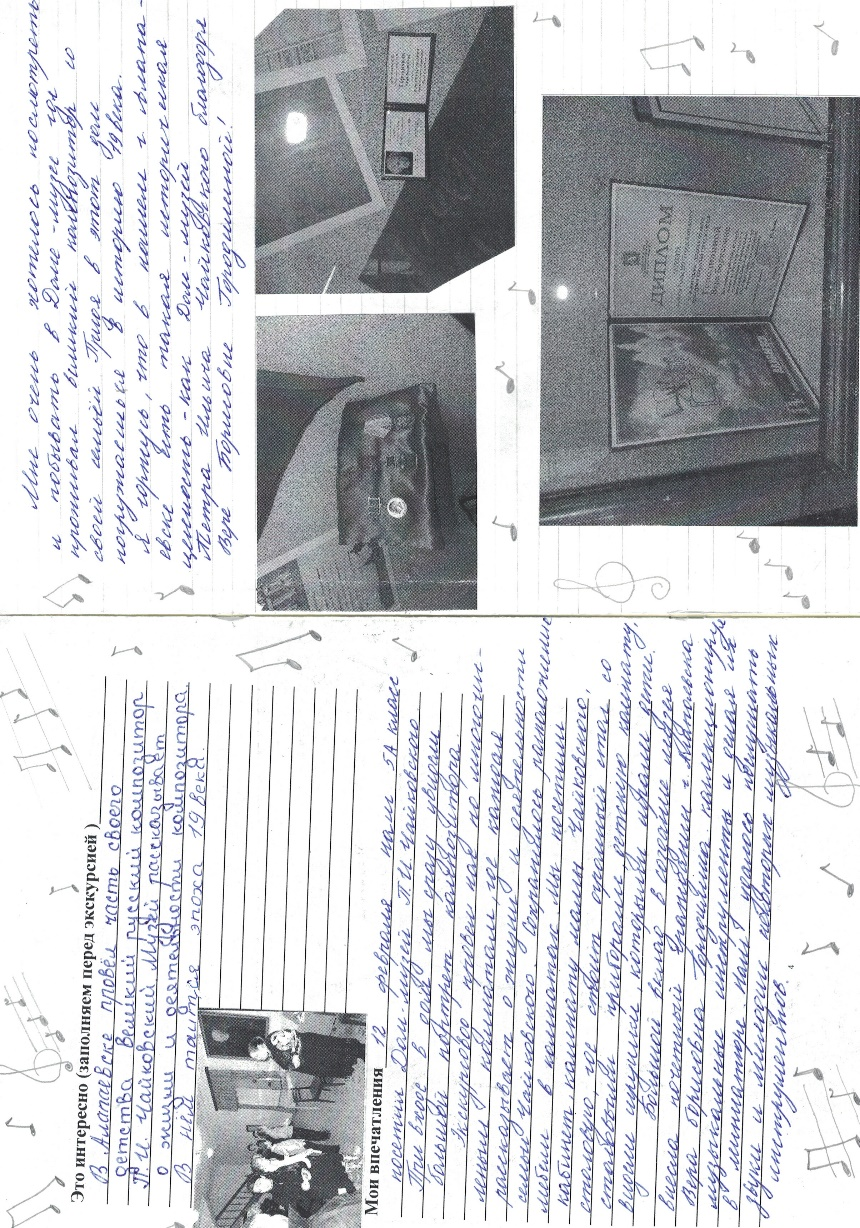 Это интересно (заполняем перед экскурсией )
В Алапаевске провёл часть своего
детства великий русский композитор
П. И. Чайковский. Музей рассказывает
о жизни и деятельности композитора.
В ней таится эпоха 19 века.
Мои впечатления 12 февраля наш 5А класс
посетил Дом-музей П.И Чайковского.
При входе в дом мы сразу увидели
большой портрет композитора.
Экскурсовод провел нас по многочис-
ленным комнатам, где каждая
рассказывает о жизни и деятельности
семьи Чайковского. Сохранилась расположение
мебели в комнатах. Мы посетили
кабинет, комнату мамы Чайковского,
столовую, где стоит огромный стол со
столовыми приборами, детскую комнату,
видели игрушки, которыми играли дети.
Большой вклад в создание музея
внесла почетный гражданин г Алапаевска
Вера Борисовна Городилина.
музыкальные инструменты и делая их
в миниатюре. Нам удалось послушать
звуки и мелодии некоторых музыкальных
инструментов.
Мне очень хотелось посмотреть
и побывать в Доме-музее где
проживал великий композитор со
своей семьёй Придя в этот дом
погружаешься в историю 19 века.
Я горжусь, что в нашем г Алапа-
евске есть такая историческая
ценность - как Дом-музей
Петра Ильича Чайковского благодаря
Вере Борисовне Городилиной!
ДИПЛОМ